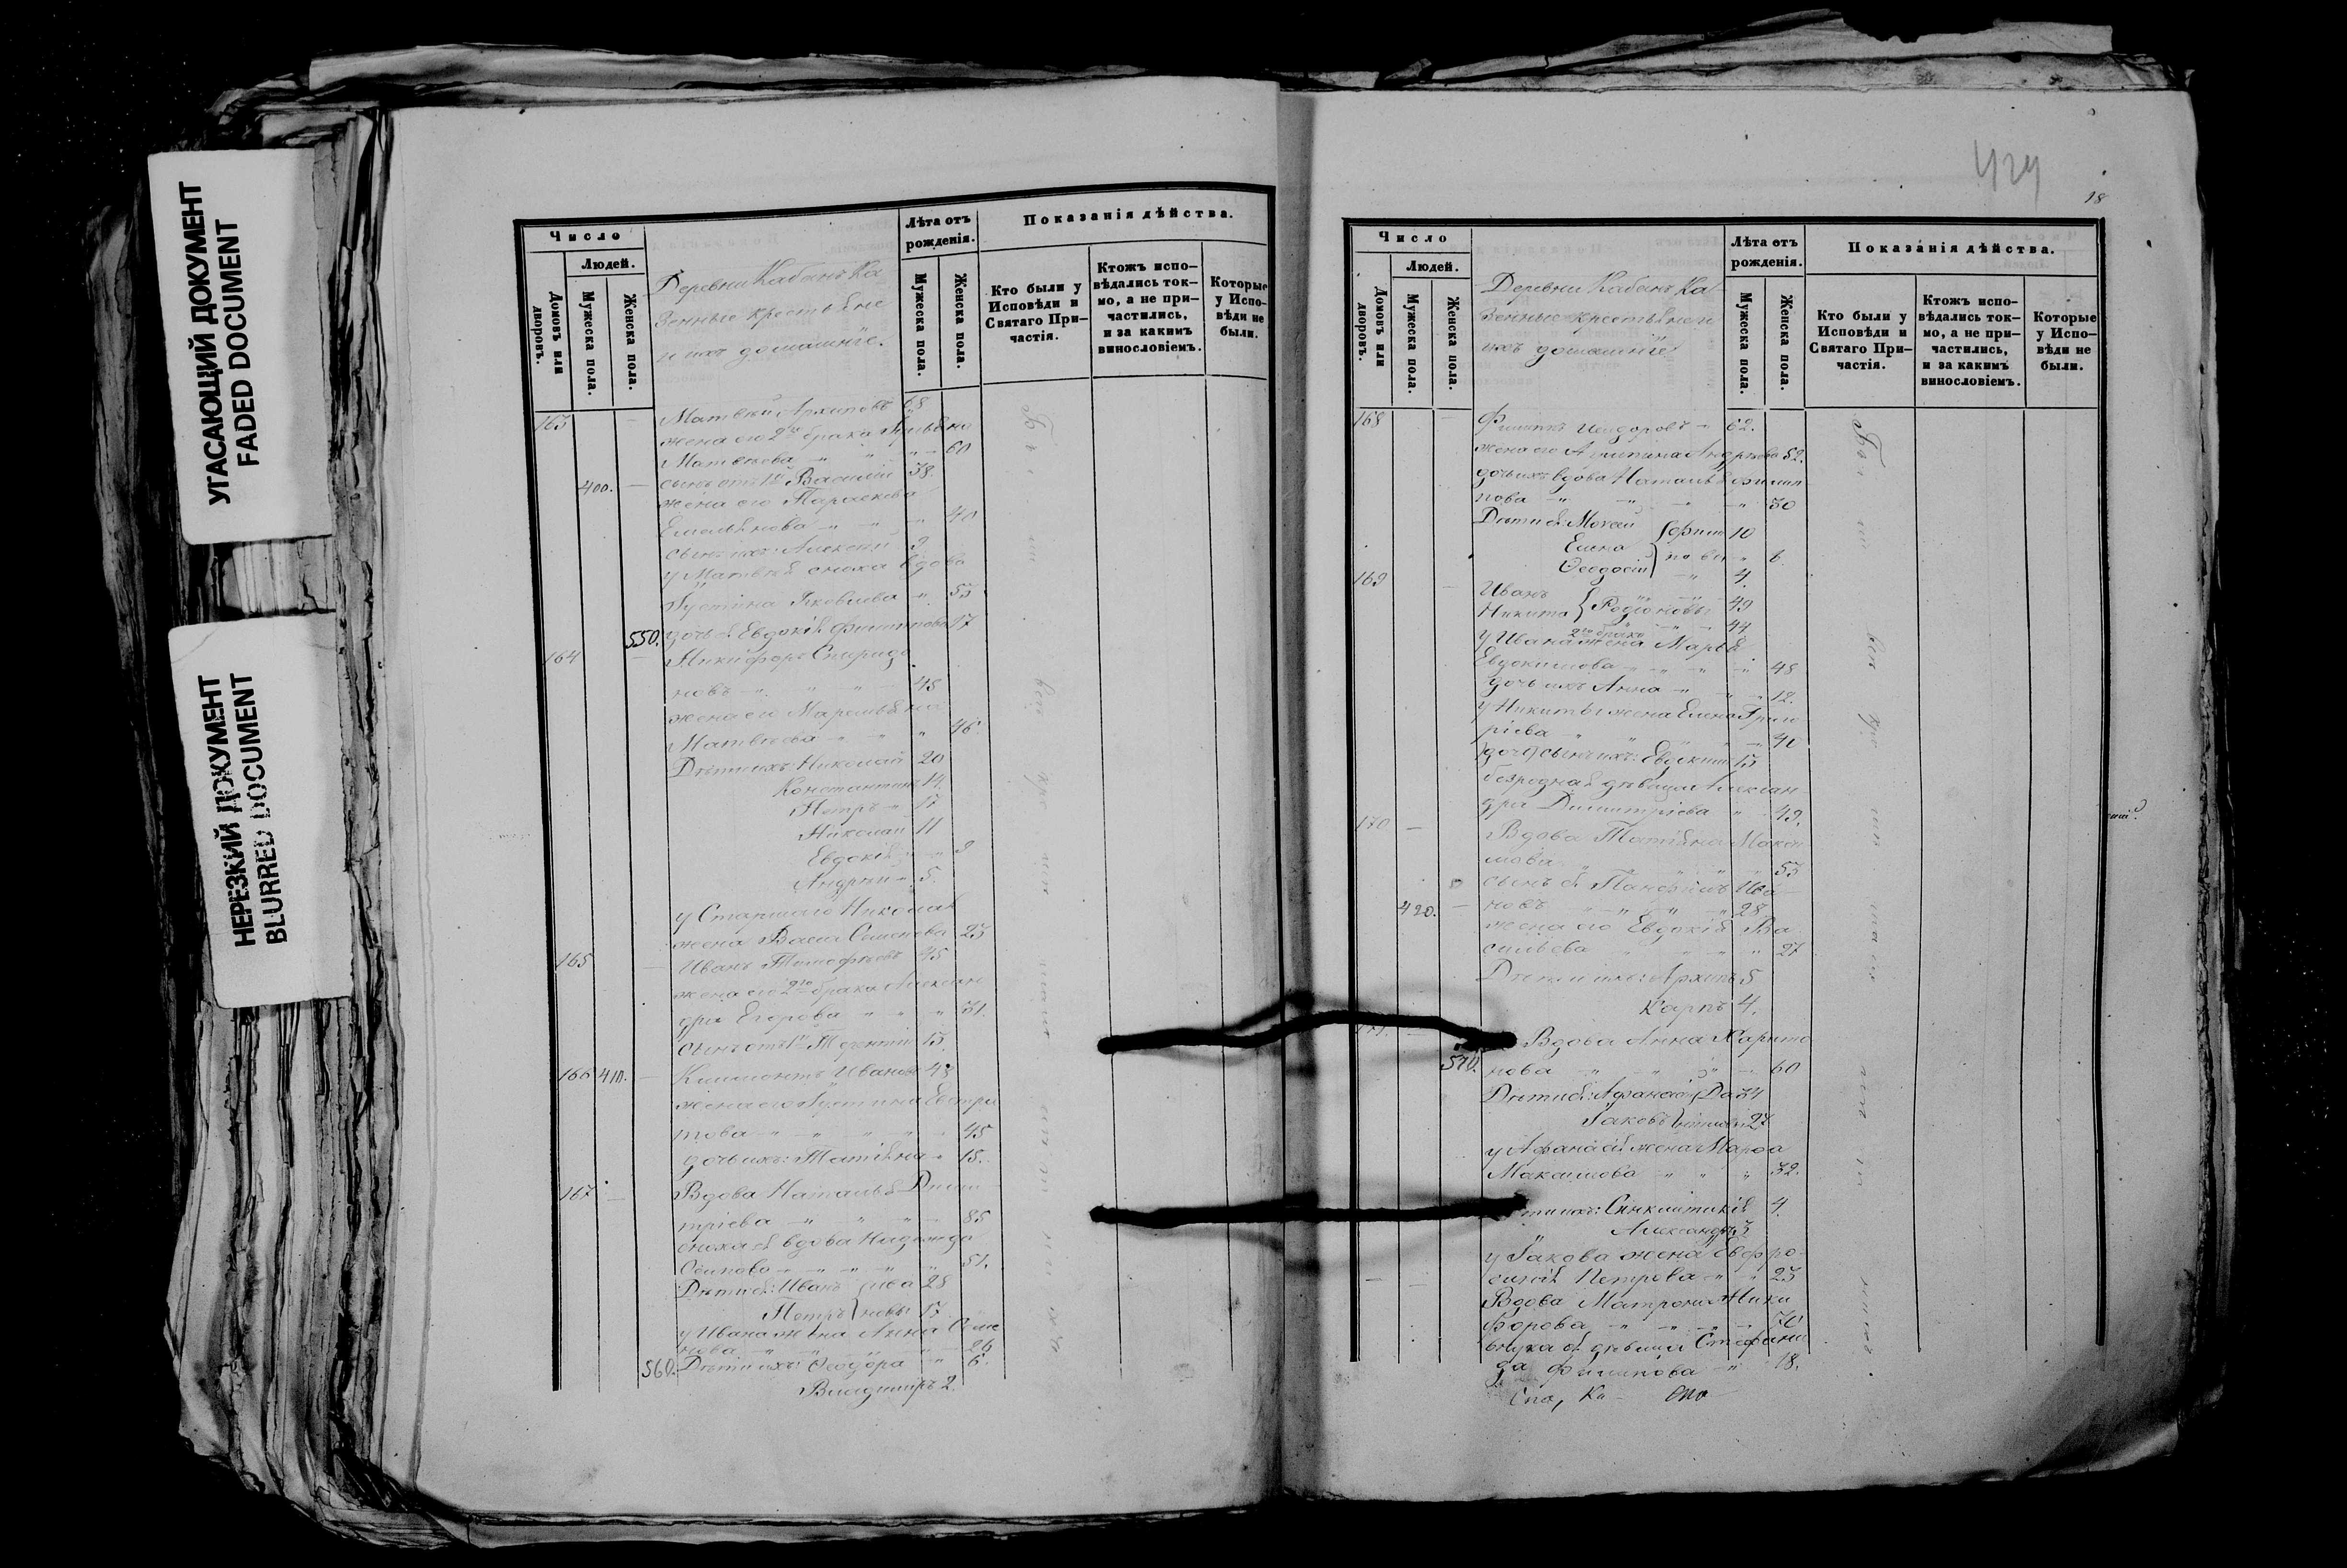 УГАСАЮЩИЙ ДОКУМЕНТ
FADED DOCUMENT
НЕРЕЗКИЙ ДОКУМЕНТ
BLURRED DOCUMENT
Число
Людей.
Домовъ или дворовъ.
Мужеска пола.
Женска пола.
Деревни Кабанъ Ка
зенные крестьяне
и ихъ домашніе.
Лѣта отъ рожденія.
Мужеска пола.
Женска пола.
Показанія дѣйства.
Кто были у Исповѣди и Святаго При-частія.
Ктожъ испо-вѣдались ток-мо, а не при-частились, и за какимъ винословіемъ.
Которые у Испо-вѣди не были.
163 Матвѣй Архиповъ 68
жена его 2го брака
Матвѣева 60
400. сынъ отъ 1го Василій 38.
жена его Параскева
Емельянова 40
сынъ ихъ Алексѣй 9
у Матвѣя сноха вдова
Іустина Яковлева 53
550. дочь ея Евдокія Филиппова 17
164 Никифоръ Спиридо
новъ 45
жена его
Матвѣева 46.
Дѣти ихъ: Николай 20
Константинъ 14.
Петръ 17
Николай 11
Евдокія 9
Андрей 5.
у Старшаго Николая
жена Васса Семенова 23
165 Иванъ Тимофѣевъ 45
жена его 2го брака Алексан
дра Егорова 31.
сынъ отъ 1го Терентій 15.
166 410. Климонтъ Ивановъ 48
жена его Іустина Евстра
това 45
дочь ихъ: Татіяна 15.
167 Вдова Наталья Дими
тріева 85
сноха ея вдова Надежда
Осипова 51.
Дѣти ея: Иванъ 28
Петръ 17
у Ивана жена Анна Семе
нова 26
560. Дѣти ихъ: Ѳеодора 6.
Владиміръ 2.
429
18
Число
Людей.
Домовъ или дворовъ.
Мужеска пола.
Женска пола.
Деревни Кабанъ Ка
зенные крестьяне и
ихъ домашніе
Лѣта отъ рожденія.
Мужеска пола.
Женска пола.
Показанія дѣйства.
Кто были у Исповѣди и Святаго При-частія.
Ктожъ испо-вѣдались ток-мо, а не при-частились, и за какимъ винословіемъ.
Которые у Испо-вѣди не были.
168 Филиппъ Исидоровъ 62.
жена его Андреева 52.
дочь ихъ вдова Наталья Филип
пова 30
Дѣти ея: Моѵсей 10
Елена 6.
Ѳеодосій 4.
169 Иванъ 49
Никита Родіоновы 44
у Ивана 2го брака жена Марья
Евдокимова 48
дочь ихъ Анна 12.
у Никиты жена Елена Григо
ріева 40
сынъ ихъ: Евдокимъ 13
безродная дѣвица Алексан
дра Димитріева 49.
170 Вдова Татіяна Макси
мова 53
сынъ ея Панфилъ Ива
420. новъ 28
жена его Евдокія Ва
сильева 27
Дѣти ихъ: Архипъ 5
Карпъ 4.
171. Вдова Анна Харито
570. нова 60
Дѣти ея: Афанасій 34
Іаковъ 27
у Афанасія жена Марфа
Максимова 32.
ихъ: Синклитикія 4.
Александръ 3
у Іакова жена Евфро
синія Петрова 23
Вдова Матрона Ники
форова 70
внука ея дѣвица Стефани
да Филипова 18.